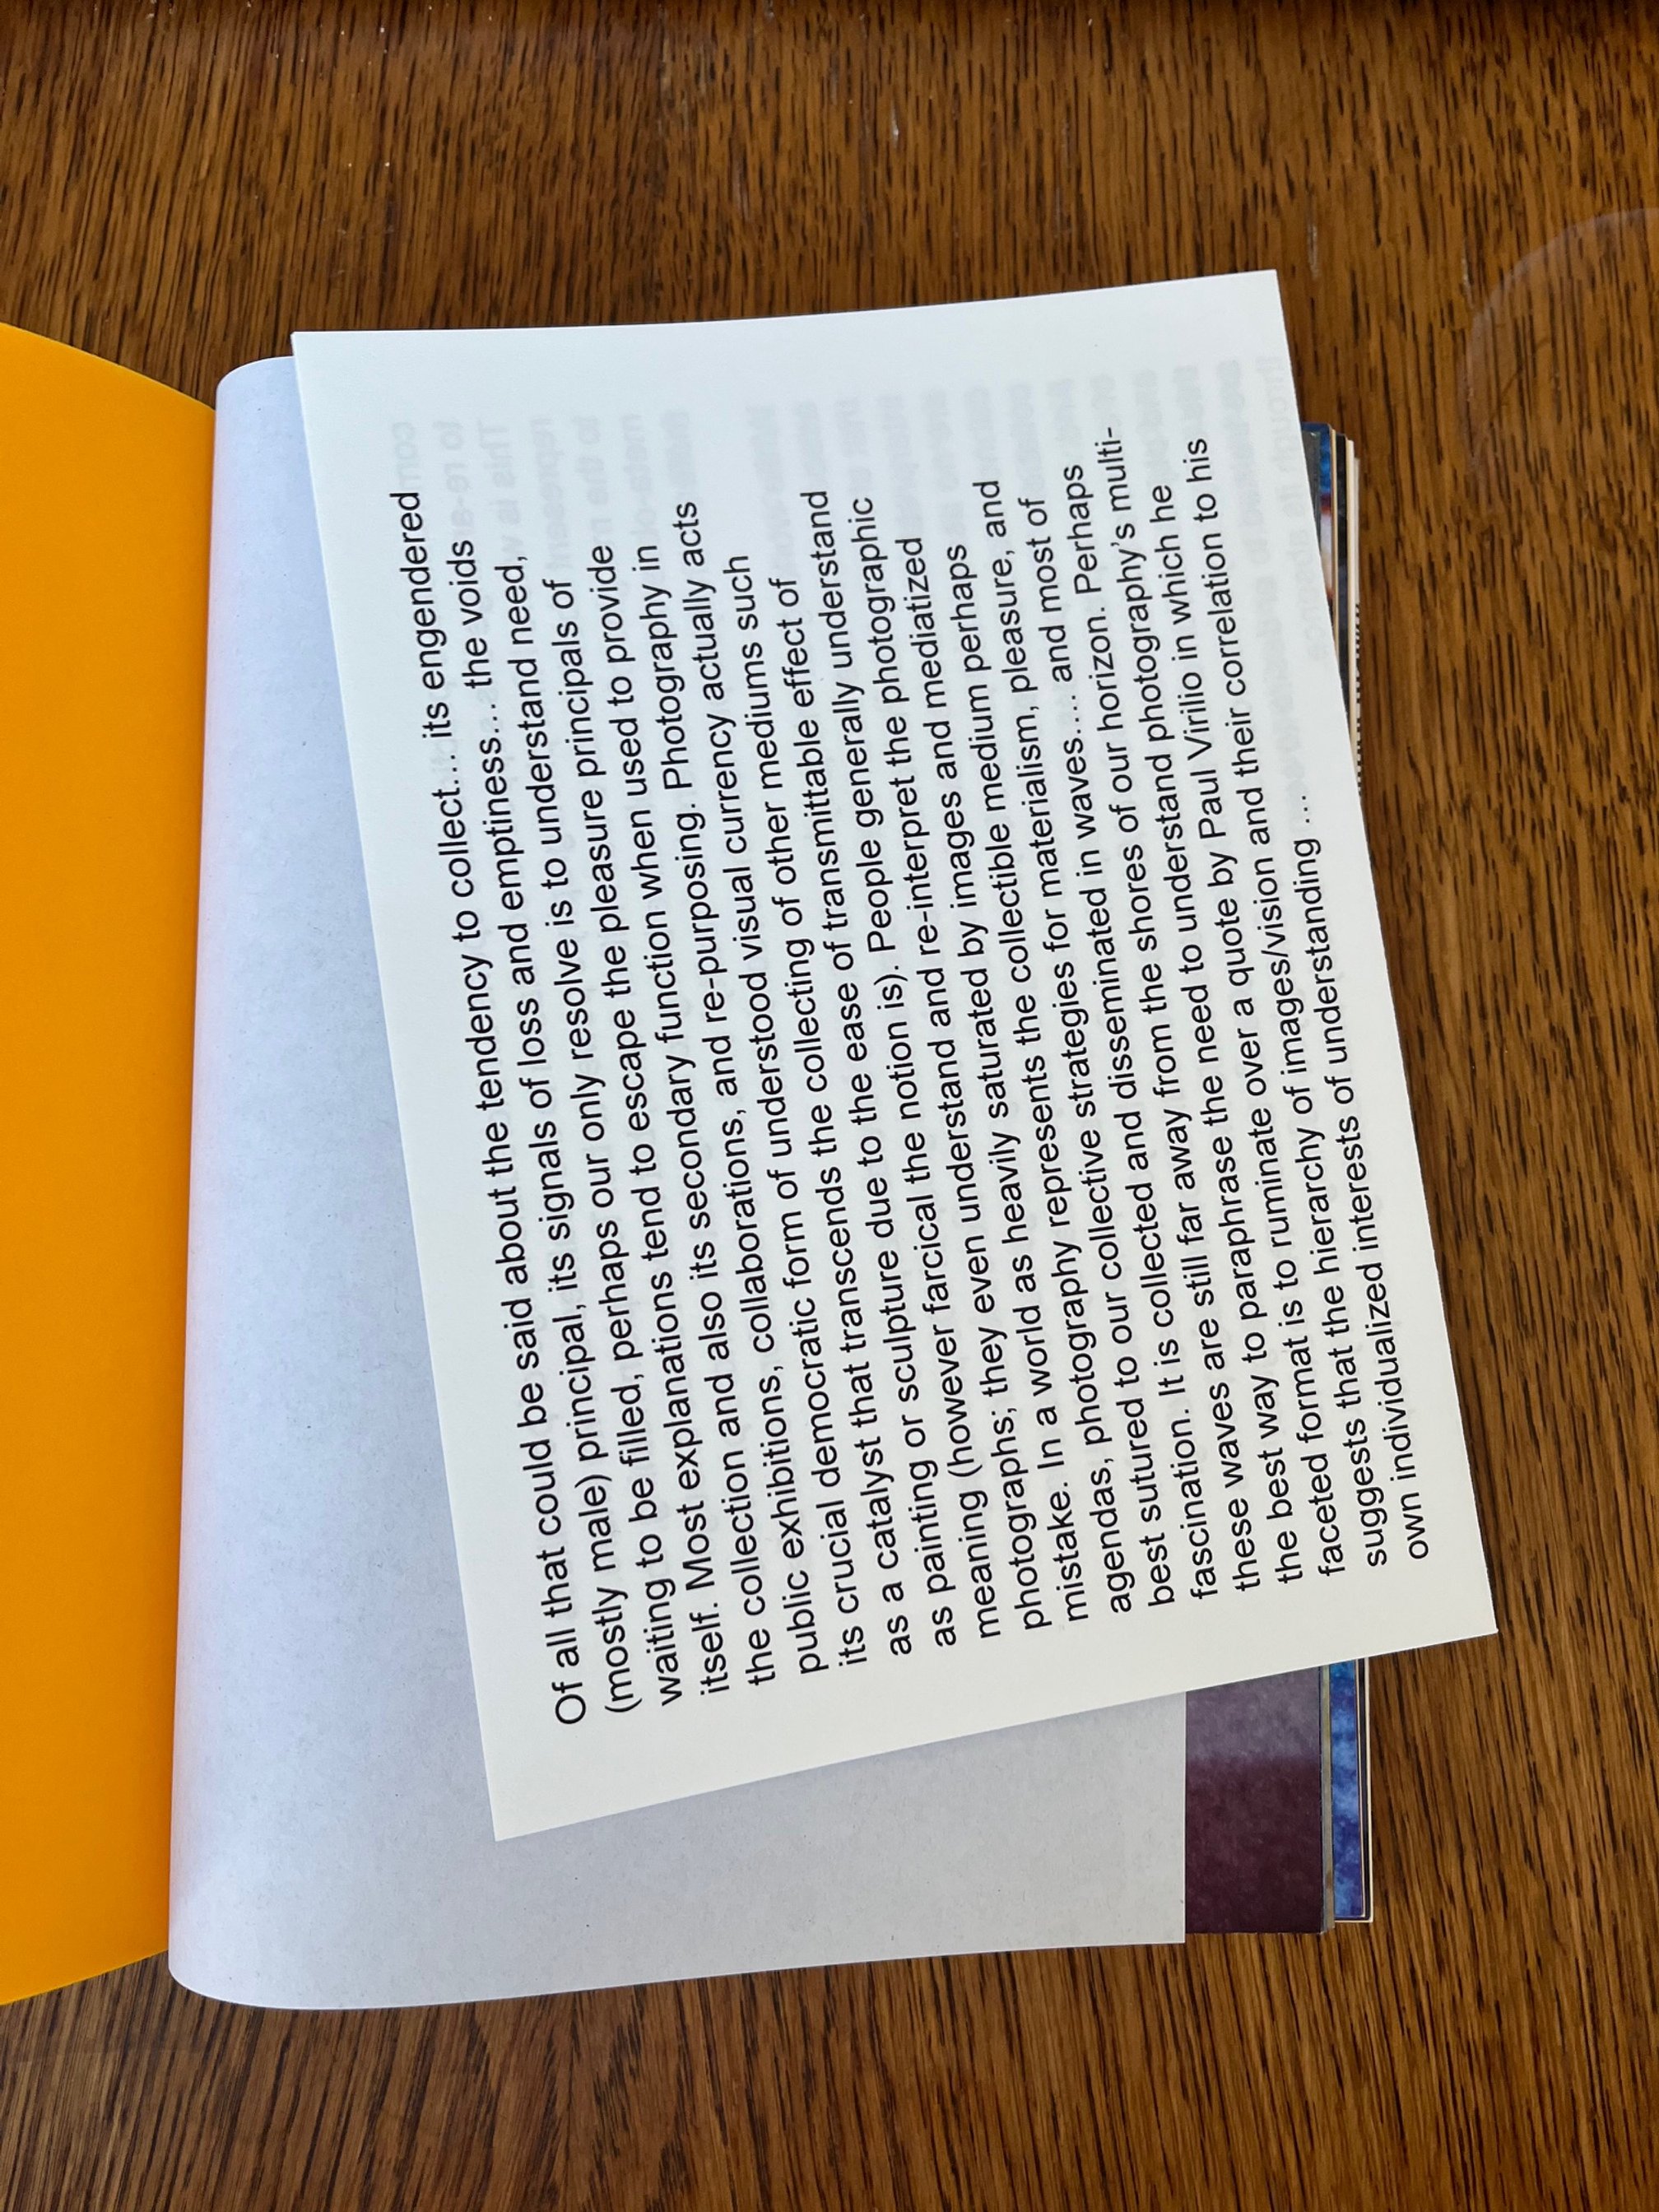 Of all that could be said about the tendency to collect…its engendered
(mostly male) principal, its signals of loss and emptiness… the voids
waiting to be filled, perhaps our only resolve is to understand need,
itself. Most explanations tend to escape the pleasure principals of
the collection and also its secondary function when used to provide
public exhibitions, collaborations, and re-purposing. Photography in
its crucial democratic form of understood visual currency actually acts
as a catalyst that transcends the collecting of other mediums such
as painting or sculpture due to the ease of transmittable effect of
meaning (however farcical the notion is). People generally understand
photographs; they even understand and re-interpret the photographic
mistake. In a world as heavily saturated by images and mediatized
agendas, photography represents the collectible medium perhaps
best sutured to our collective strategies for materialism, pleasure, and
fascination. It is collected and disseminated in waves…. and most of
these waves are still far away from the shores of our horizon. Perhaps
the best way to paraphrase the need to understand photography's multi-
faceted format is to ruminate over a quote by Paul Virilio in which he
suggests that the hierarchy of images/vision and their correlation to his
own individualized interests of understanding …